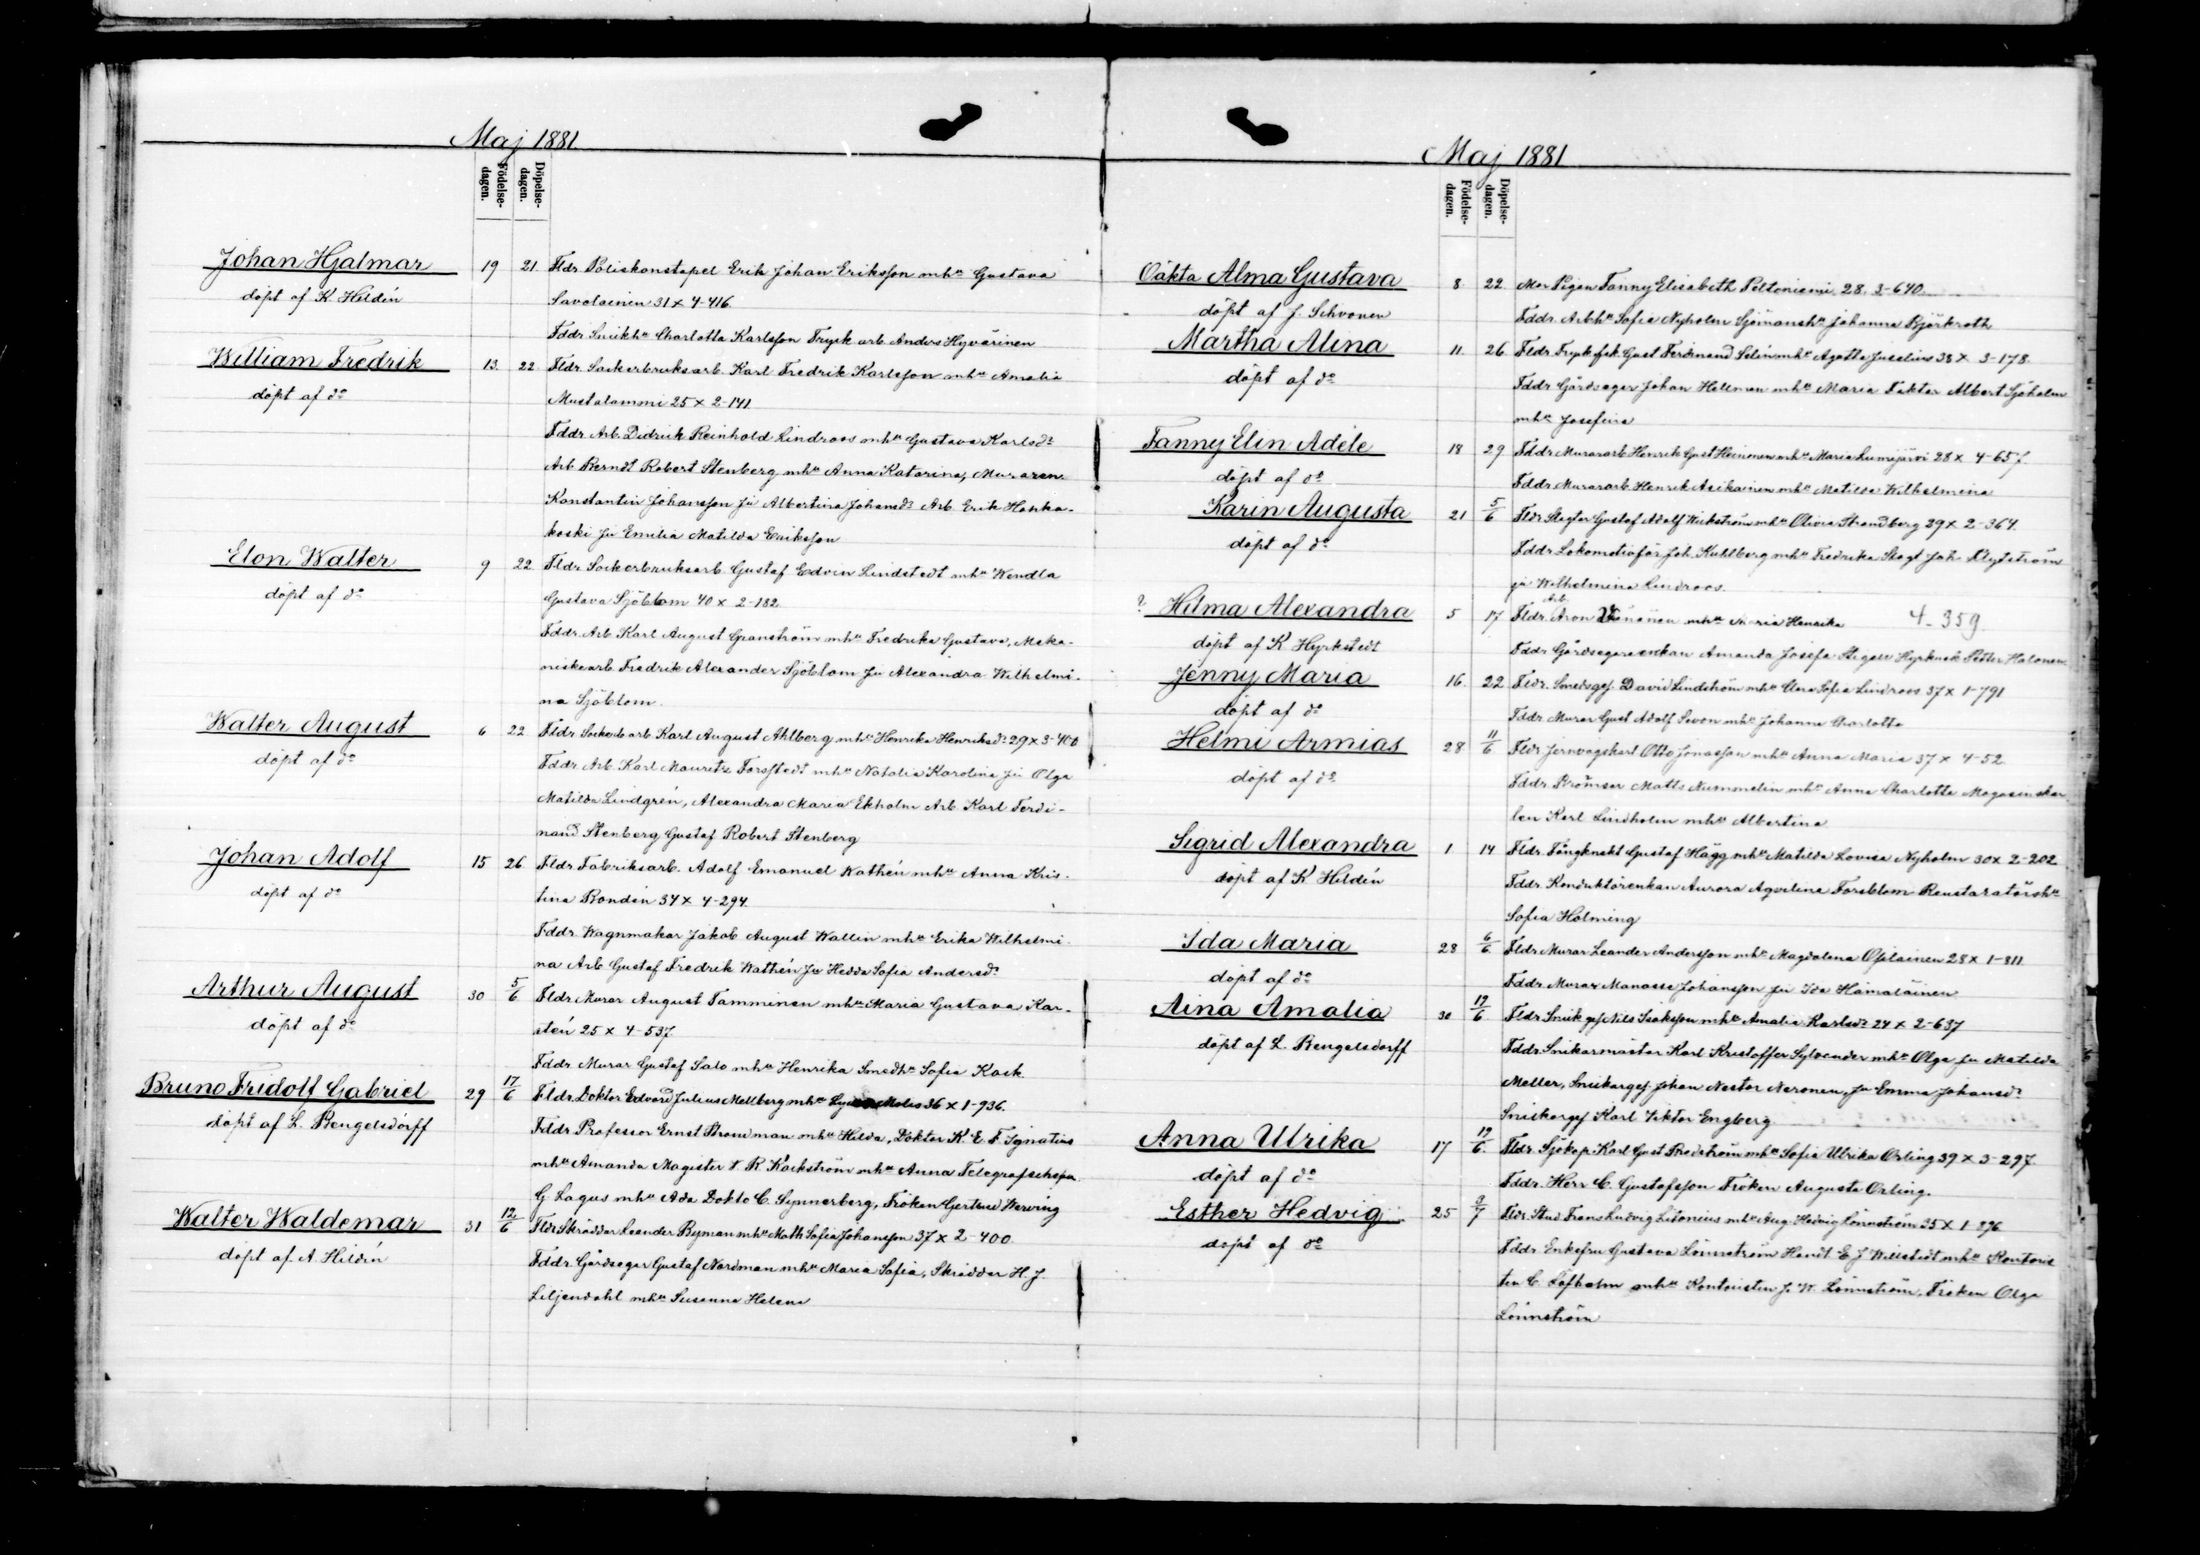 Maj 1881
Födelse-dagen.
Döpelse-dagen.
Johan Hjalmar 19 21 Fldr Poliskonstapel Erik Johan Eriksson mhu Gustava
döpt af K Hildén
Savolainen 31 x 4-416.
Fddr Snickh Charlotta Karlsson Tryck arb Anders Hyvärinen
William Fredrik 13 22 Fldr. Sockerbruksarb. Karl Fredrik Karlsson mhu Amalia
döpt af do
Mustalammi 25 x 2-141
Fddr Arb. Didrick Reinhold Lindroos mhu Gustava Karlsdr
Arb Berndt Robert Stenberg mhu Anna Katarina, Muraren
Konstantin Johansson Ju Albertina Johansdr Arb. Erik Hanka-
koski Ju Emilia Matilda Eriksson
Elon Walter 9 22 Fldr Sockerbruksarb Gustaf Edvin Lindstedt mhu Wendla
döpt af do
Gustava Sjöblom 40 x 2-182
Fddr Arb Karl August Granström mhu Fredrika Gustava, Meka-
niskearb Fredrik Alexander Sjöblom Ju Alexandra Wilhelmi-
na Sjöblom.
Walter August 6 22 Fldr Sockerb arb Karl August Ahlberg mhu Henrika Henriksdr 29 x 3-400
döpt af do
Fddr Arb. Karl Mauritz Forsstedt mhu Natalia Karolina Ju Olga
Matilda Lindgrén, Alexandra Maria Ekholm Arb Karl Ferdi-
nand Stenberg Gustaf Robert Stenberg
Johan Adolf 15 26 Fldr Fabriksarb. Adolf Emanuel Wathén mhu Anna Kris-
döpt af do
tina Bondén 34 x 4-294
Fddr Wagnmakar Jakob August Wallin mhu Erika Wilhelmi-
na Arb Gustaf Fredrik Wathén Ju Hedda Sofia Andersdr
Arthur August 30 5/6 Fldr Murar August Tamminen mhu Maria Gustava Kar-
döpt af do
stén 25 x 4-537
Fddr Murar Gustaf Salo mhu Henrika Smedh Sofia Kock
Bruno Fridolf Gabriel 29 17/6 Fldr Doktor Edvard Julius Mellberg mhu Molis 36 x 1-936.
döpt af L. Bengelsdorff
Fddr Professor Ernst Bonsdman mhu Hilda, Doktor K. E F. Ignatius
mhu Amanda Magister V. R Kockström mhu Anna Telegrafschefen
G Lagus mhu Ada Dokto C. Synnerberg, Fröken Gertrud Werving
Walter Waldemar 31 12/6 Fldr Skräddar Leander Byman mhu Math Sofia Johansson 37 x 2-400
döpt af A Hildén
Fddr Gårdsegar Gustaf Nordman mhu Maria Sofia, Skräddar H. J.
Liljendahl mhu Susanna Helena
Maj 1881
Födelse-dagen.
Döpelse-dagen.
Oäkta Alma Gustava 8 22 Mor Pigan Fanny Elisabeth Peltoniemi 28. 3-640
döpt af J. Sihvonen
Fddr. Arbhu Sofia Nyholm Sjömanshu Johanna Björkroth
Martha Alina 11 26 Fldr. Tryckfak Gust Ferdinand Selén mhu Agatta Juselius 38 x 3-178.
döpt af do
Fddr Gårdsegar Johan Hellman mhu Maria Faktor Albert Sjöholm
mhu Josefina
Fanny Elin Adéle 18 29 Fldr Murararb Henrik Gust Heinonen mhu Maria Lumijärvi 28 x 4-657.
döpt af do
Fddr Murararb Henrik Asikainen mhu Matilda Wilhelmina
Karin Augusta 21 5/6 Fldr Slagtar Gustaf Adolf Wickström mhu Olivia Strandberg 29 x 2-364
döpt af do
Fddr Lokomotivför Joh. Kullberg mhu Fredrika Slagt Joh Flytström
ju Wilhelmina Lindroos.
? Hilma Alexandra 5 17 Fldr. Arb Aron Väänänen mhu Maria Henrika 4-359
döpt af K Hyrkstedt
Fddr Gårdsegareenkan Amanda Josefa Hyrkusk Petter Halonen
Jenny Maria 16 22 Fldr. Smedsgs. David Lindström mhu Clara Sofia Lindroos 37 x 1-791
döpt af do
Fddr Murar Gust Adolf Sevon mhu Johanna Charlotta
Helmi Armias 28 11/6 Fldr Jernvagskarl Otto Jonasson mhu Anna Maria 37 x 4-52
döpt af do
Fddr Bromsar Matts Nummelin mhu Anna Charlotta Magasinskar
len Karl Lindholm mhu Albertina
Sigrid Alexandra 1 14 Fldr. Fångknekt Gustaf Hägg mhu Matilda Lovisa Nyholm 30 x 2-202
döpt af K Hildén
Fddr. Konduktörenkan Aurora Aqvilina Forsblom Reustaratörshu
Sofia Holming
Ida Maria 28 6/6 Fldr Murar Leander Andersson mhu Magdalena Ojalainen 28 x 1-811
döpt af do
Fddr Murar Manasse Johansson ju Ida Hämäläinen
Aina Amalia 30 19/6 Fldr Snick gs Nils Isaksson mhu Amalia Karlsdr 24 x 2-637
döpt af L. Bengelsdorff
Fddr Snikarmäster Karl Kristoffer Sylvander mhu Olga ju Matilda
Meller, Snickarges Johan Nestor Neronen, Ju Emma Johansdr
Snickargs Karl Viktor Engberg
Anna Ulrika 17 19/6 Fldr. Sjökap Karl Gust Bredström mhu Sofia Ulrika Orling 39 x 3-297
döpt af do
Fddr. Herr C. Gustafsson Fröken Augusta Orling.
Esther Hedvig 25 3/7 Fldr Stud Frans Ludvig Litonius mhu Aug. Hedvig Lönnström 35 x 1-296
döpt af do
Fddr Enkefru Gustava Lönnström Handl E J Willstedt mhu Kontoris
ten C. Löfholm mhu Kontoristen J. W. Lönnström, Fröken Olga
Lönnström